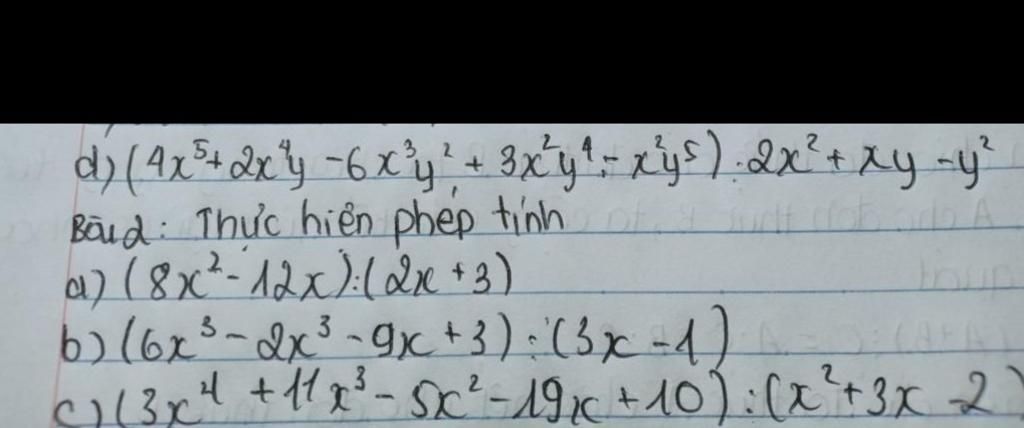 d) (4x⁵+2x⁴y -6x³y² + 3x²y⁴ - x²y⁵) : 2x² + xy - y²
Bài 2: Thực hiện phép tính
a) (8x² - 12x) : (2x + 3)
b) (6x³ - 2x³ - 9x + 3) : (3x - 1)
c) (3x⁴ + 11x³ - 5x² - 19x + 10) : (x² + 3x - 2)